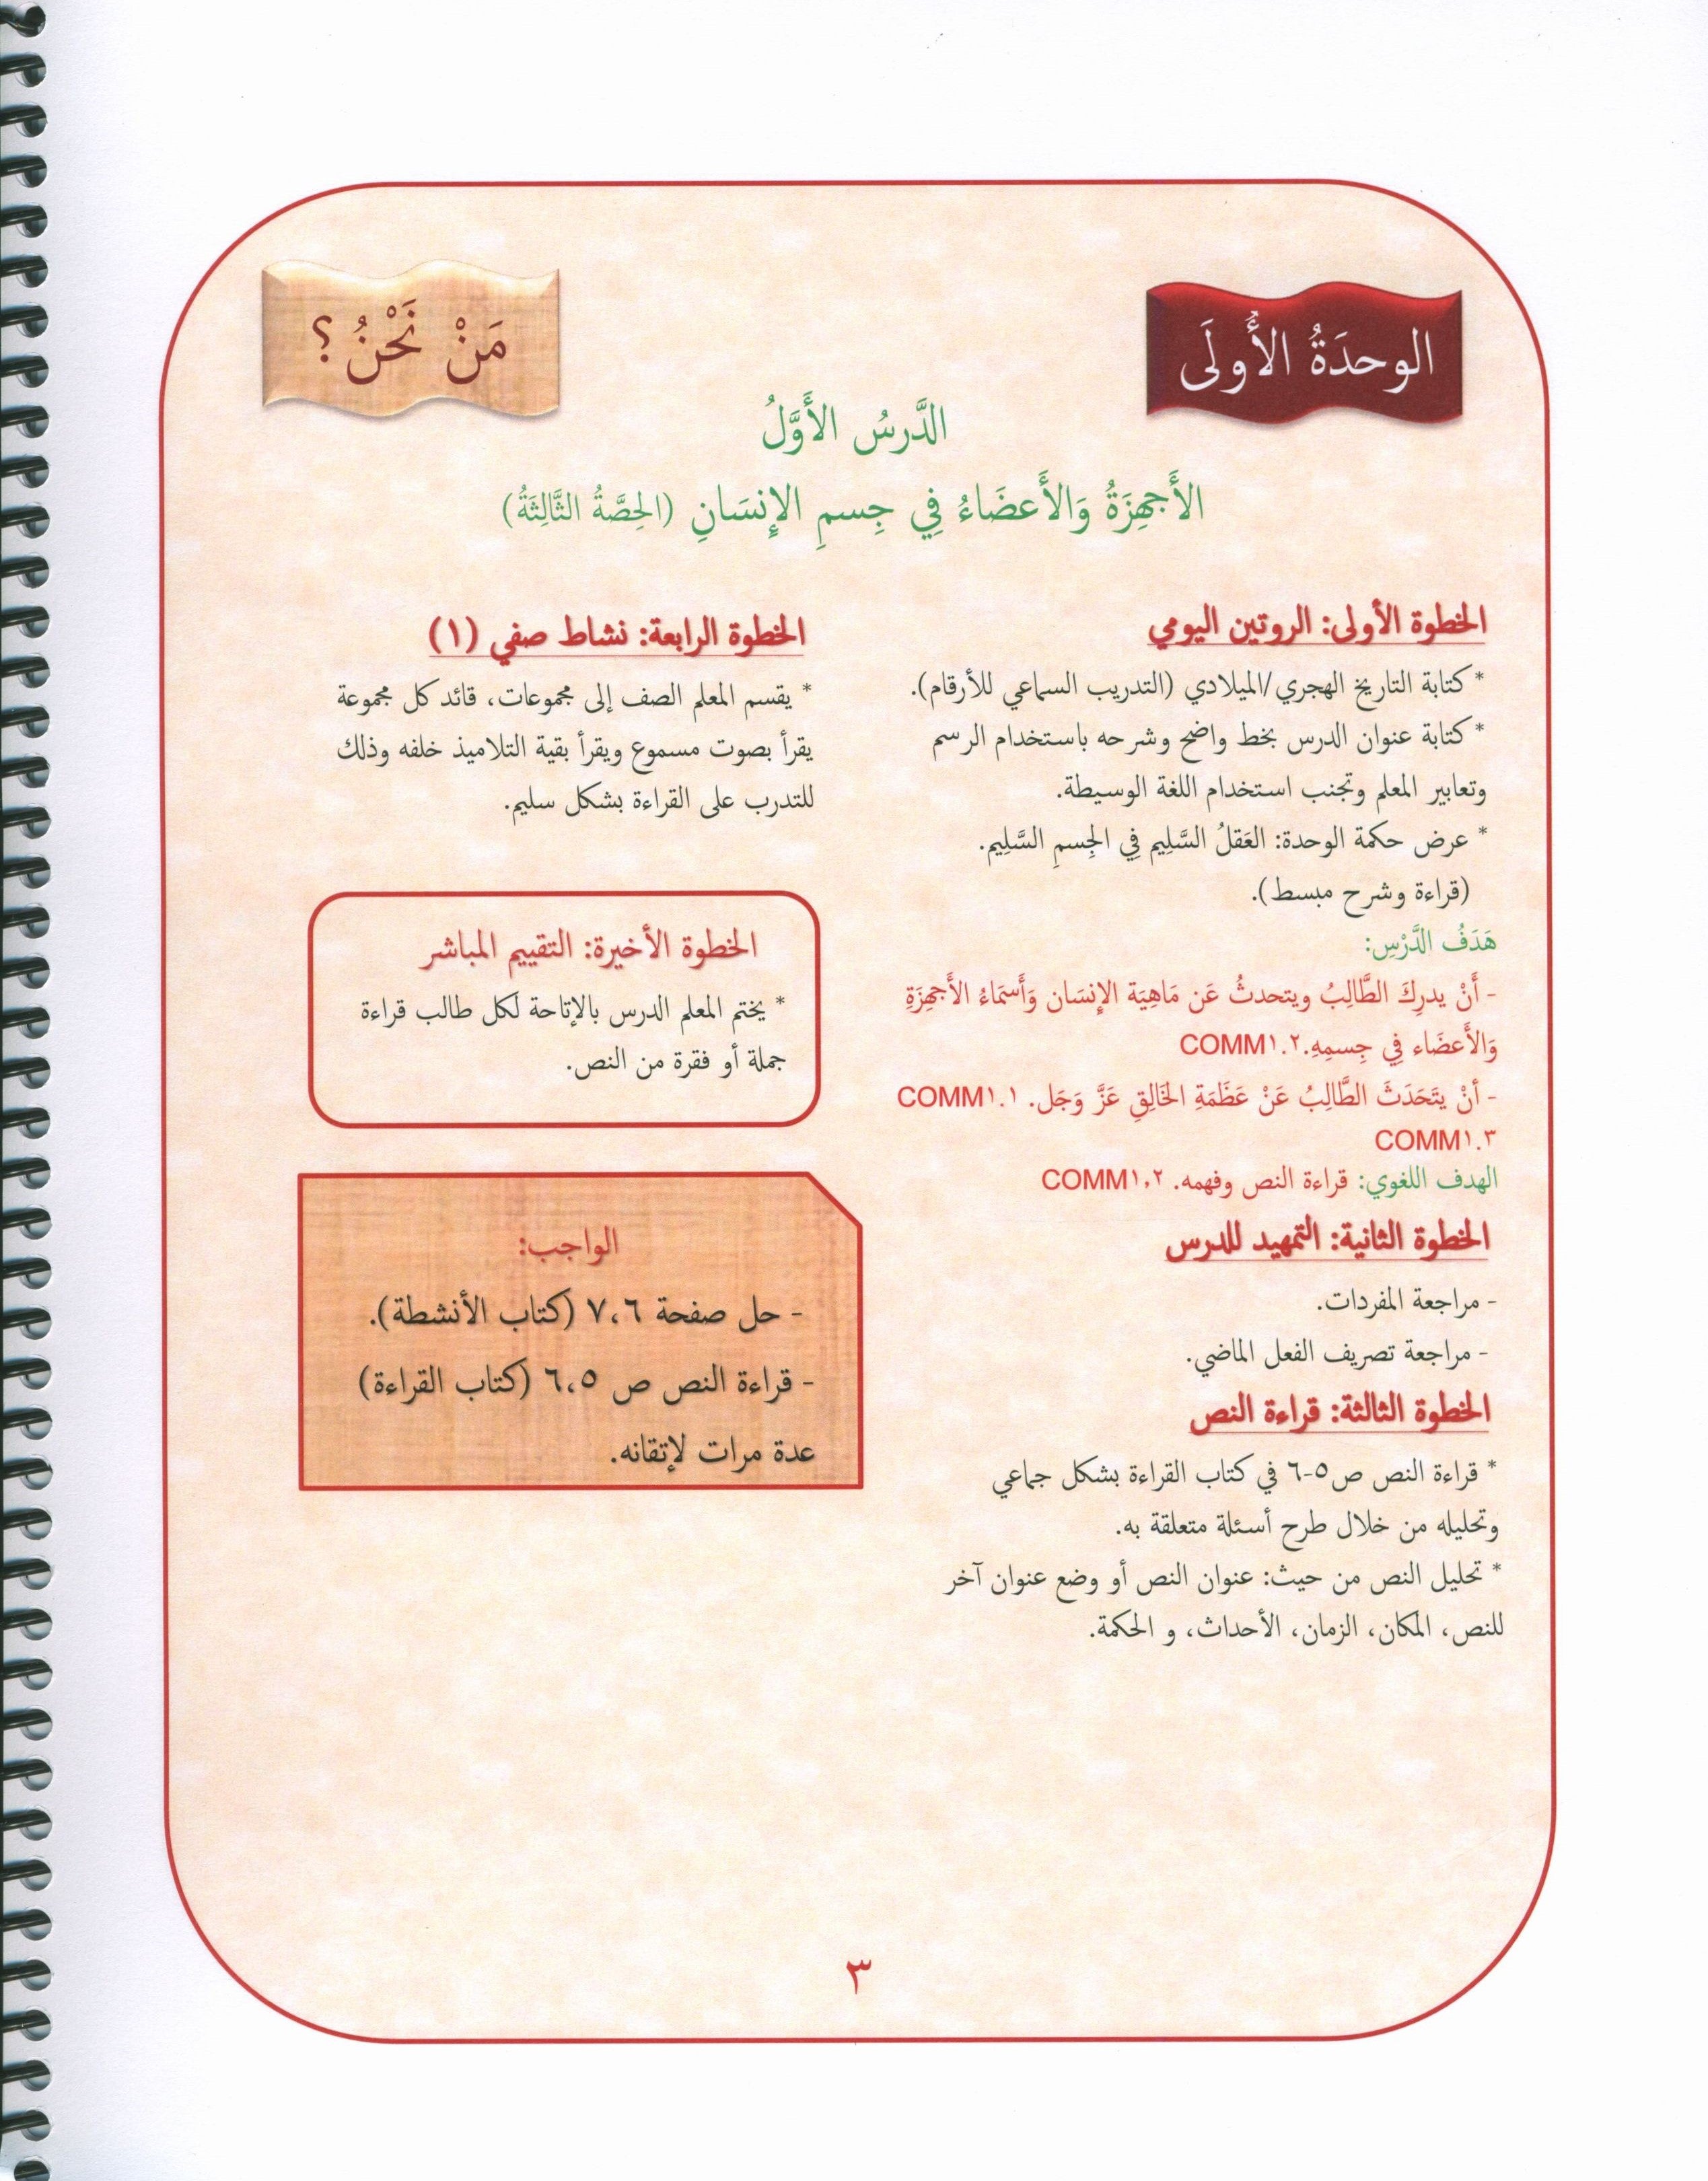 الوحدَةُ الأُولَى
مَنْ نَحْنُ؟
الدَّرسُ الأَوَّلُ
الأَجهِزَةُ وَالأَعضَاءُ فِي جِسمِ الإِنسَانِ (الحِصَّةُ الثَّالِثَةُ)
الخطوة الأولى: الروتين اليومي
* كتابة التاريخ الهجري/الميلادي (التدريب السماعي للأرقام).
* كتابة عنوان الدرس بخط واضح وشرحه باستخدام الرسم
وتعابير المعلم وتجنب استخدام اللغة الوسيطة.
* عرض حكمة الوحدة: العَقلُ السَّلِيم فِي الجِسمِ السَّلِيم.
(قراءة وشرح مبسط).
هَدَفُ الدَّرْسِ:
- أَنْ يدرِكَ الطَّالِبُ ويتحدثُ عَن مَاهِيَة الإِنسَان وَأَسمَاءُ الأَجهِزَةِ
وَالأَعضَاء فِي جِسمِهِ.COMM١.٢
- أنْ يتَحَدَثَ الطَّالِبُ عَنْ عَظَمَةِ الخَالِقِ عَزَّ وَجَل. COMM١.١
COMM١.٣
الهدف اللغوي: قراءة النص وفهمه. COMM١,٢
الخطوة الثانية: التمهيد للدرس
- مراجعة المفردات.
- مراجعة تصريف الفعل الماضي.
الخطوة الثالثة: قراءة النص
* قراءة النص ص٥-٦ في كتاب القراءة بشكل جماعي
وتحليله من خلال طرح أسئلة متعلقة به.
* تحليل النص من حيث: عنوان النص أو وضع عنوان آخر
للنص، المكان، الزمان، الأحداث، و الحكمة.
الخطوة الرابعة: نشاط صفي (١)
* يقسم المعلم الصف إلى مجموعات، قائد كل مجموعة
يقرأ بصوت مسموع ويقرأ بقية التلاميذ خلفه وذلك
للتدرب على القراءة بشكل سليم.
الخطوة الأخيرة: التقييم المباشر
* يختم المعلم الدرس بالإتاحة لكل طالب قراءة
جملة أو فقرة من النص.
الواجب:
- حل صفحة ٧،٦ (كتاب الأنشطة).
- قراءة النص ص ٦،٥ (كتاب القراءة)
عدة مرات لإتقانه.
٣